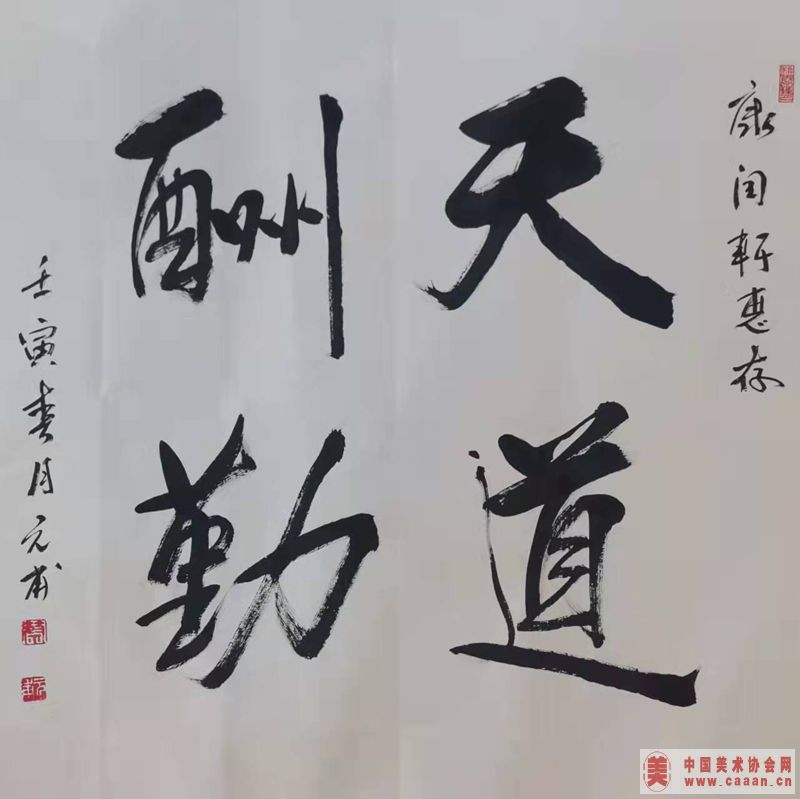 康闰轩惠存
天道
酬勤
壬寅春月元甫
中国美术协会网
www.caaan.cn